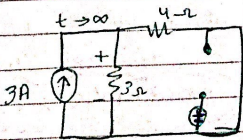 t→∞
4Ω
+
3A
3Ω
-